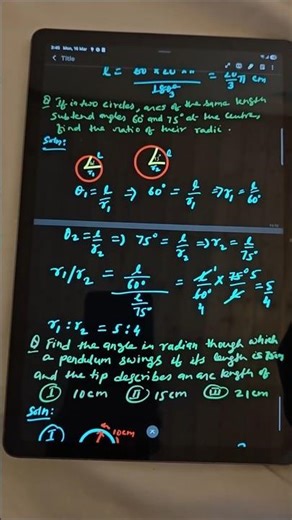 3:45 Mon, 16 Mar
Title
l = 60 × 20 × π / 180° = 20/3 π cm
Q If in two circles, arcs of the same length
subtend angles 60° and 75° at the centre,
find the ratio of their radii.
Soln:
l
r₁
75°
l
r₂
θ₁ = l/r₁ ⇒ 60° = l/r₁ ⇒ r₁ = l/60°
θ₂ = l/r₂ ⇒ 75° = l/r₂ ⇒ r₂ = l/75°
r₁/r₂ = (l/60°)/(l/75°) = l/60° 4 × 75° 5/l = 5/4
r₁ : r₂ = 5 : 4
Q Find the angle in radian though which
a pendulum swings if its length is 75cm
and the tip describes an arc length of
(I) 10cm (II) 15cm (III) 21cm
Soln:
(I) 10cm